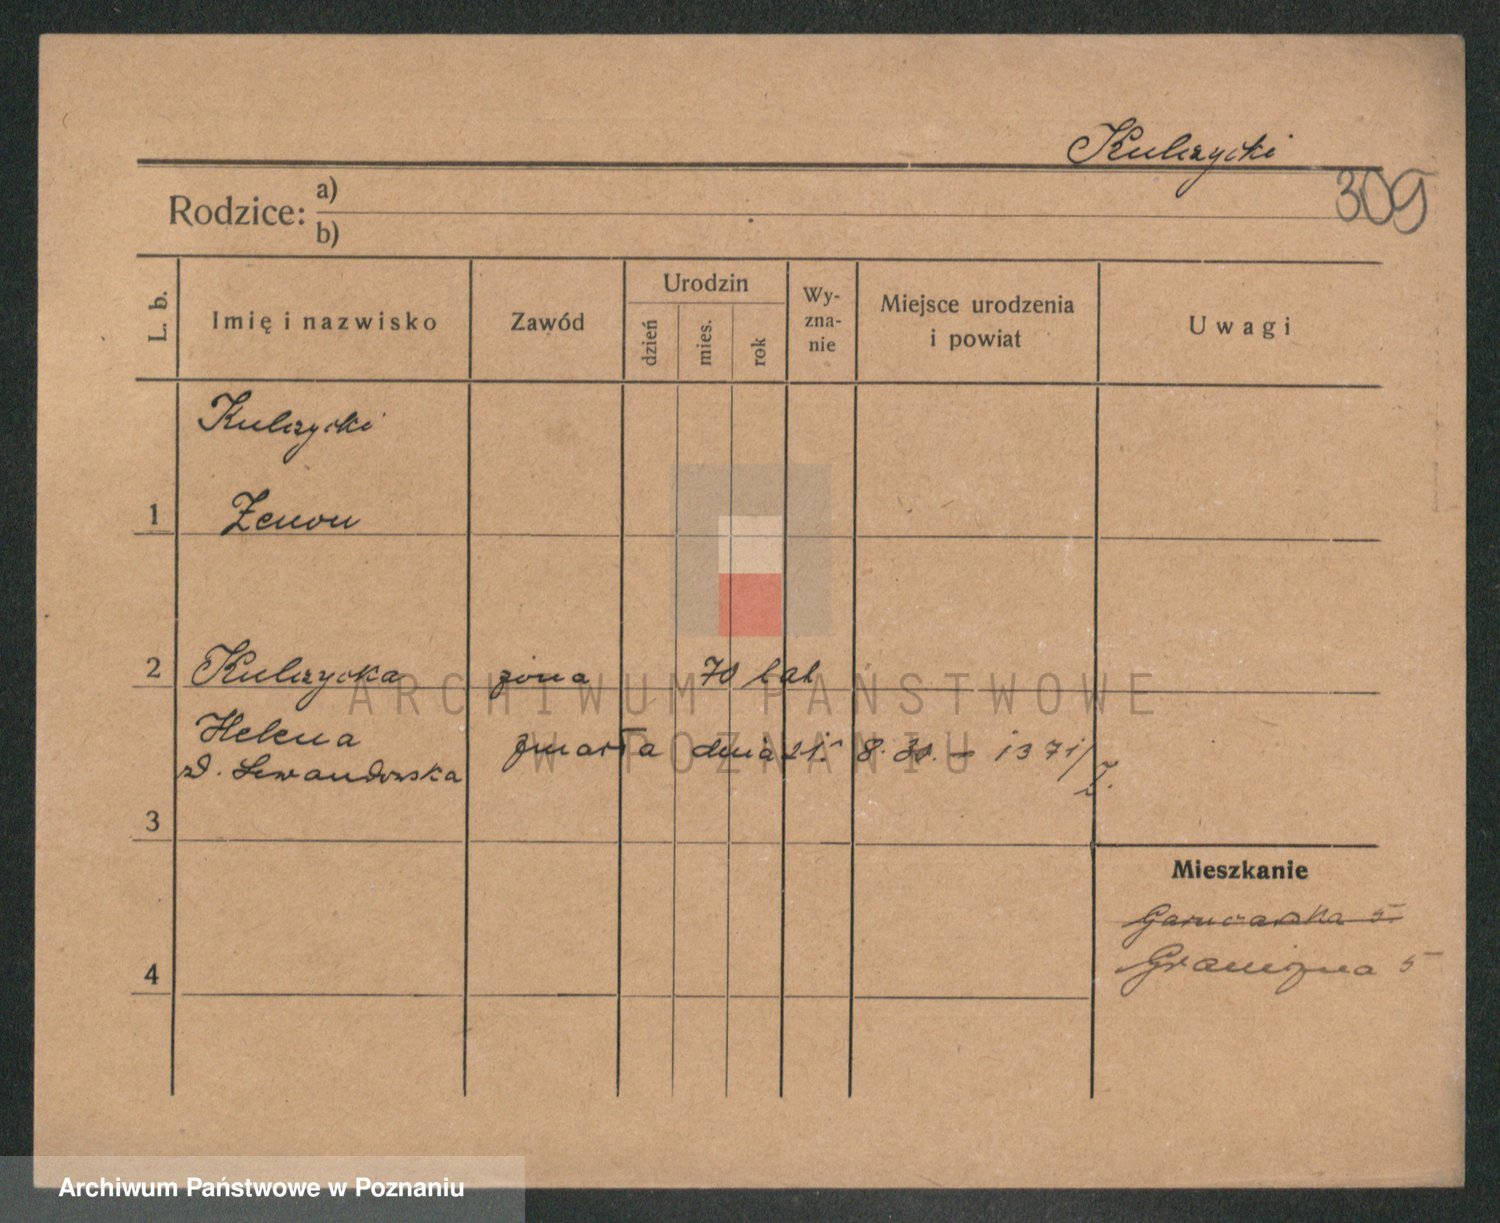 Kulczycki
309
Rodzice: a)
b)
L. b.
Imię i nazwisko
Zawód
Urodzin
dzień
mies.
rok
Wy-
zna-
nie
Miejsce urodzenia
i powiat
Uwagi
Kulczycki
1 Zenon
2 Kulczycka żona 70 lat
Helena zmarła dnia 21. 8. 30. – 1371/I.
zd. Lewandowska
3
Mieszkanie
Garncarska 5.
Graniczna 5
4
ARCHIWUM PAŃSTWOWE
W POZNANIU
Archiwum Państwowe w Poznaniu